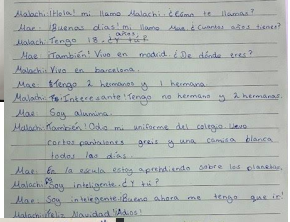 Malachi: ¡Hola! mi llamo Malachi. ¿Cómo te llamas?
Mae: ¡Buenos dias! mi llamo Mae. ¿Cuantos años tienes?
Malachi: Tengo 18 años. ¿Y tú?
Mae: ¡También! Vivo en madrid. ¿De dónde eres?
Malachi: Vivo en barcelona.
Mae: Tengo 2 hermanos y 1 hermana.
Malachi: Interesante! Tengo no hermano y 2 hermanas.
Mae: Soy alumina.
Malachi: También! Odio mi uniforme del colegio. Llevo
cortos pantalones greis y una camisa blanca
todos los días.
Mae: En la escula estoy aprendiendo sobre los planetas.
Malachi: Soy inteligente. ¿Y tú?
Mae: Soy inteligente! Bueno ahora me tengo que ir!
Malachi: Feliz Navidad! Adios!